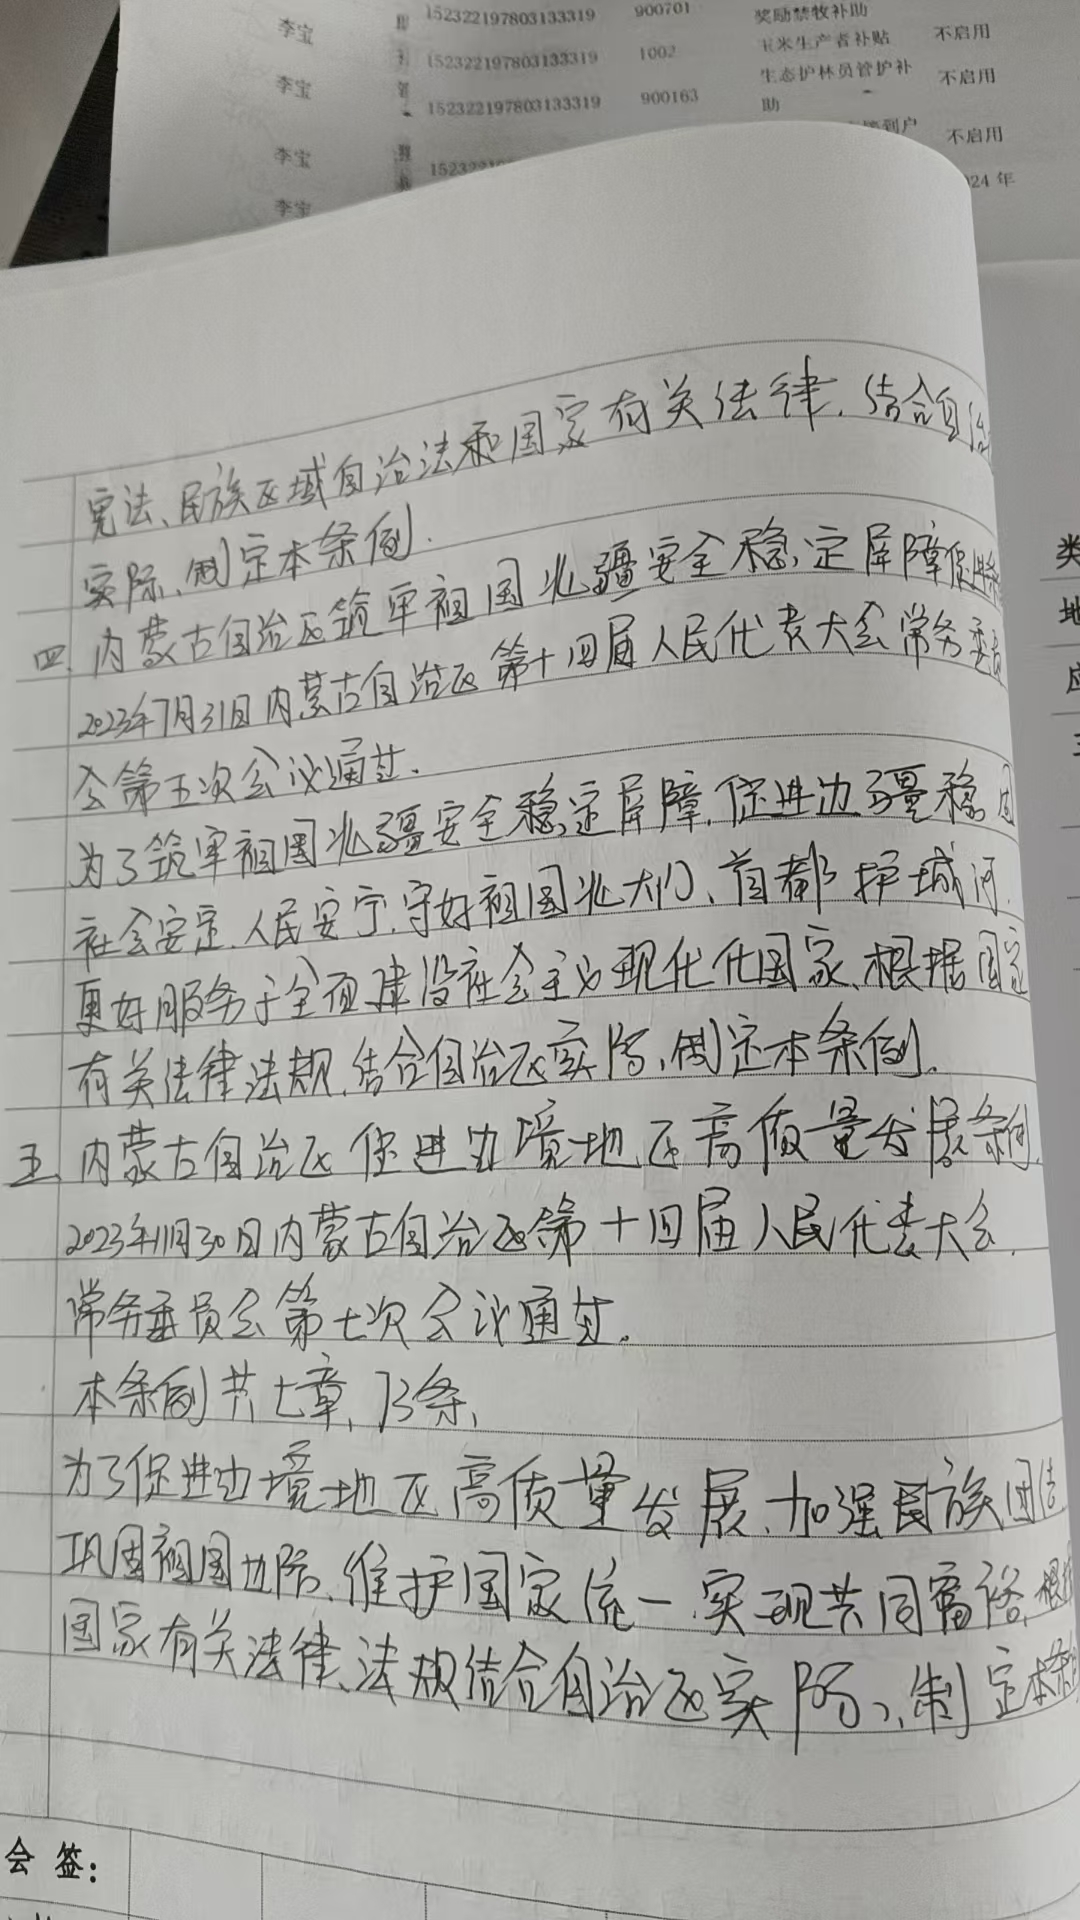 李宝 152322197803133319 900701 奖励禁牧补助
李宝 152322197803133319 1002 玉米生产者补贴 不启用
152322197803133319 900163 生态护林员管护补助 不启用
李宝 到户 不启用
李宝 24年
宪法、民族区域自治法和国家有关法律,结合自治
实际,制定本条例.
四、内蒙古自治区筑牢祖国北疆安全稳定屏障促进条
2023年7月31日内蒙古自治区第十四届人民代表大会常务委员
会第五次会议通过.
为了筑牢祖国北疆安全稳定屏障,促进边疆稳固
社会安定,人民安宁,守好祖国北大门、首都护城河,
更好服务于全面建设社会主义现代化国家,根据国家
有关法律法规,结合自治区实际,制定本条例.
五、内蒙古自治区促进边境地区高质量发展条例.
2023年11月30日内蒙古自治区第十四届人民代表大会
常务委员会第七次会议通过.
本条例共七章,73条,
为了促进边境地区高质量发展,加强民族团结
巩固祖国边防,维护国家统一,实现共同富裕,根据
国家有关法律、法规结合自治区实际,制定本条例
类
地
应
会 签: